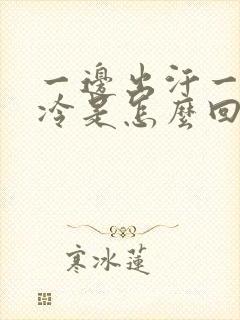 一邊出汗一
冷是怎麼回
寒冰蓮